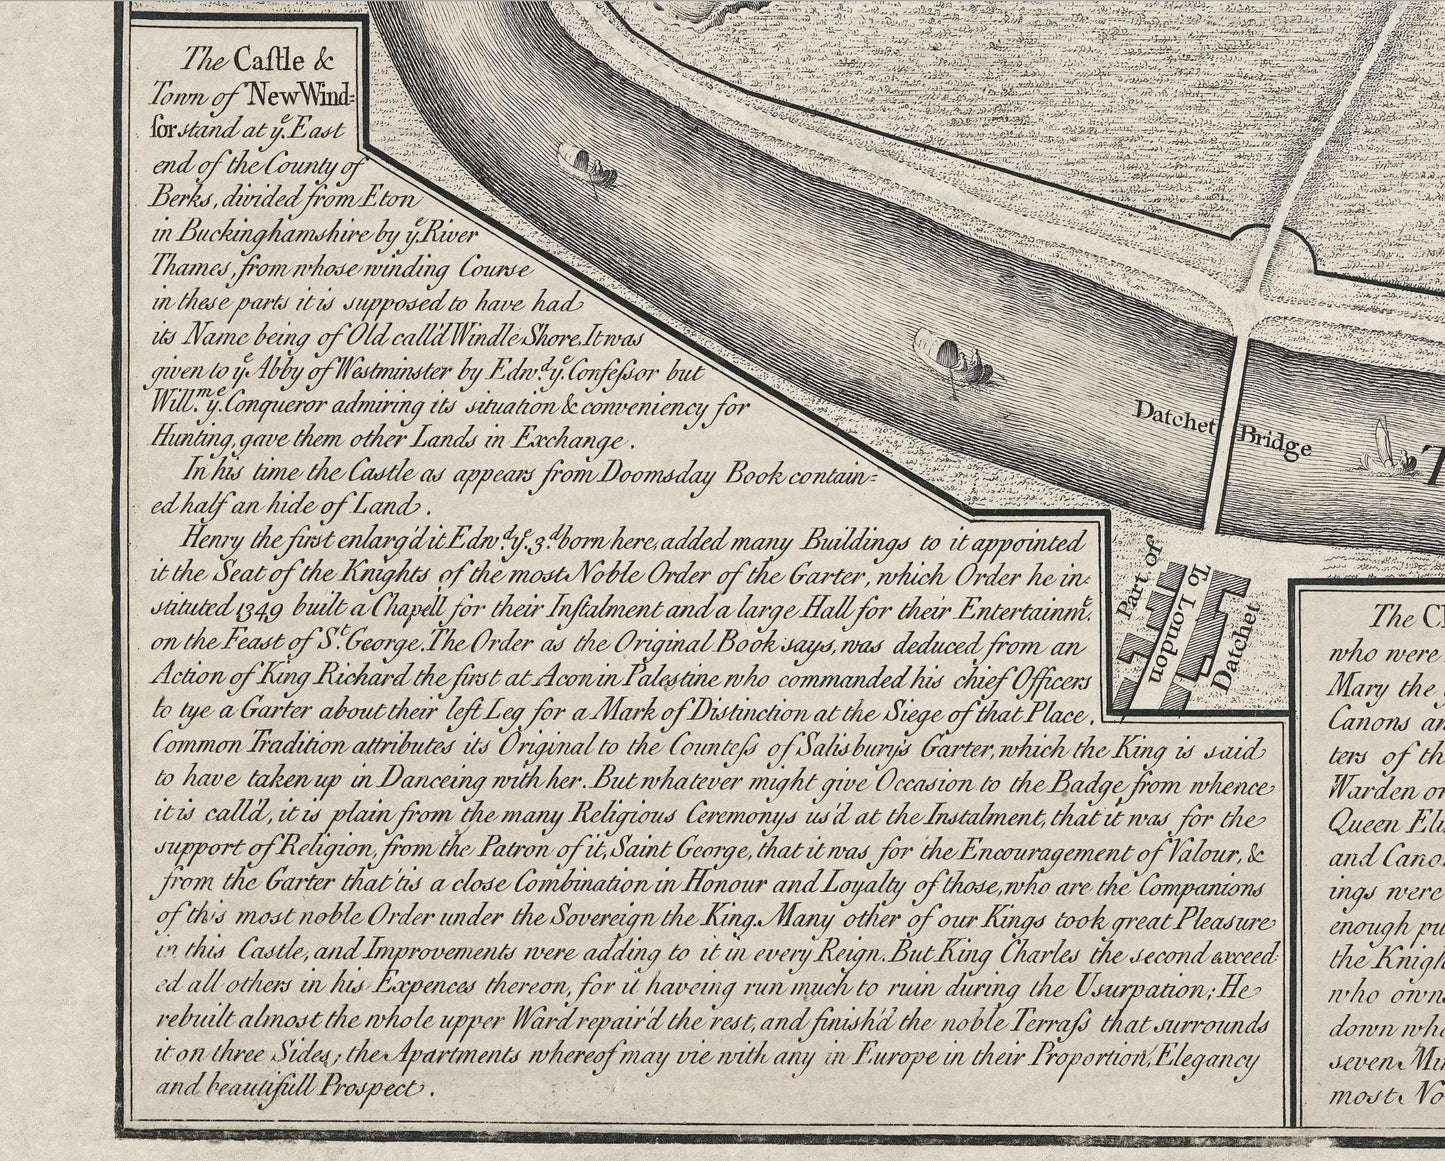 The Caſtle &
Town of New Wind=
ſor stand at yͤ. East
end of the County of
Berks, divided from Eton
in Buckinghamshire by yͤ. River
Thames, from whose winding Course
in these parts it is supposed to have had
its Name being of Old call'd Windle Shore. It was
given to yͤ. Abby of Westminster by Edwᵈ. yͤ. Confeſsor but
Willᵐ. yͤ. Conqueror admiring its situation & conveniency for
Hunting, gave them other Lands in Exchange.
In his time the Castle as appears from Doomsday Book contain=
ed half an hide of Land.
Henry the first enlarg'd it Edwᵈ. yͤ. 3.ᵈ born here, added many Buildings to it appointed
it the Seat of the Knights of the most Noble Order of the Garter, which Order he in=
stituted 1349 built a Chapell for their Inſtalment and a large Hall for their Entertainmᵗ.
on the Feast of Sᵗ. George. The Order as the Original Book says, was deduced from an
Action of King Richard the first at Acon in Palestine who commanded his chief Officers
to tye a Garter about their left Leg for a Mark of Distinction at the Siege of that Place.
Common Tradition attributes its Original to the Counteſs of Salisbury's Garter, which the King is said
to have taken up in Danceing with her. But whatever might give Occasion to the Badge from whence
it is call'd, it is plain from the many Religious Ceremonys us'd at the Instalment, that it was for the
support of Religion, from the Patron of it, Saint George, that it was for the Encouragement of Valour, &
from the Garter that 'tis a close Combination in Honour and Loyalty of those, who are the Companions
of this most noble Order under the Sovereign the King. Many other of our Kings took great Pleasure
in this Castle, and Improvements were adding to it in every Reign. But King Charles the second exceed=
ed all others in his Expences thereon, for it haveing run much to ruin during the Usurpation; He
rebuilt almost the whole upper Ward repair'd the rest, and finish'd the noble Terraſs that surrounds
it on three Sides; the Apartments whereof may vie with any in Europe in their Proportion, Elegancy
and beautifull Prospect.
Datchet Bridge
T
Part of
Datchet
To London
The C
who were
Mary the
Canons an
ters of th
Warden or
Queen Eli
and Cano
ings were
enough pu
the Knigh
who own
down whe
seven Min
most No